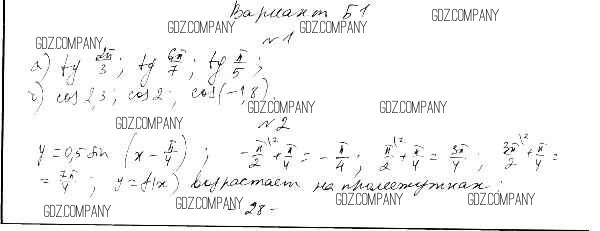 Вариант Б1
GDZ.COMPANY
GDZ.COMPANY GDZ.COMPANY
№1
а) tg 2π/3; tg 6π/7; tg π/5;
GDZ.COMPANY
г) cos 2,3; cos 2; cos(-1,8).
GDZ.COMPANY GDZ.COMPANY
GDZ.COMPANY №2
y = 0,5 sin (x - π/4); -π/2 + π/4 = -π/4; π/2 + π/4 = 3π/4; 3π/2 + π/4 =
= 7π/4; y = f(x) возрастает на промежутках:
GDZ.COMPANY GDZ.COMPANY GDZ.COMPANY GDZ.COMPANY
- 28 -